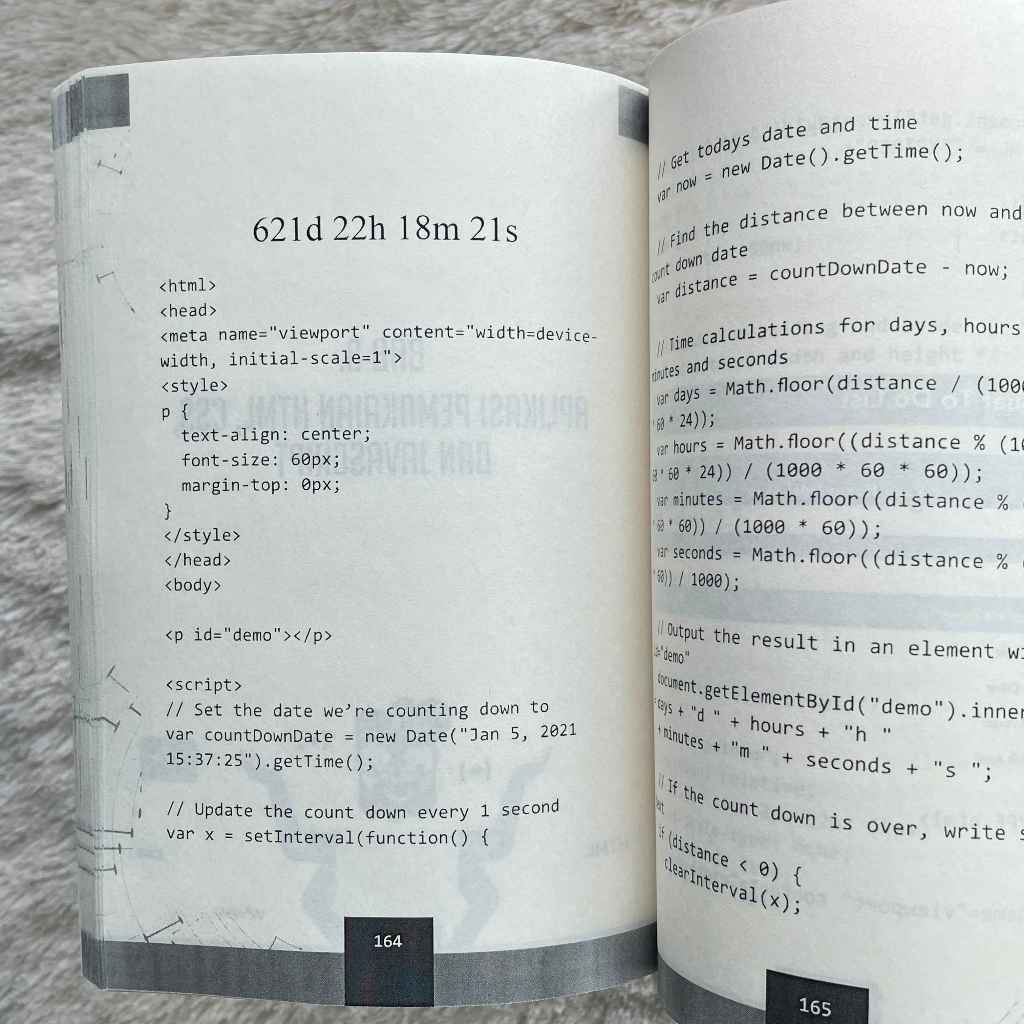 621d 22h 18m 21s
<html>
<head>
<meta name="viewport" content="width=device-
width, initial-scale=1">
<style>
p {
text-align: center;
font-size: 60px;
margin-top: 0px;
}
</style>
</head>
<body>
<p id="demo"></p>
<script>
// Set the date we’re counting down to
var countDownDate = new Date("Jan 5, 2021
15:37:25").getTime();
// Update the count down every 1 second
var x = setInterval(function() {
164
// Get todays date and time
var now = new Date().getTime();
// Find the distance between now and
count down date
var distance = countDownDate - now;
// Time calculations for days, hours
minutes and seconds
var days = Math.floor(distance / (1000
* 60 * 24));
var hours = Math.floor((distance %
* 60 * 24)) / (1000 * 60 * 60));
var minutes = Math.floor((distance %
* 60 * 60)) / (1000 * 60));
var seconds = Math.floor((distance %
* 60)) / 1000);
// Output the result in an element
id="demo"
document.getElementById("demo").
= days + "d " + hours + "h "
+ minutes + "m " + seconds + "s ";
// If the count down is over, write
if (distance < 0) {
clearInterval(x);
165